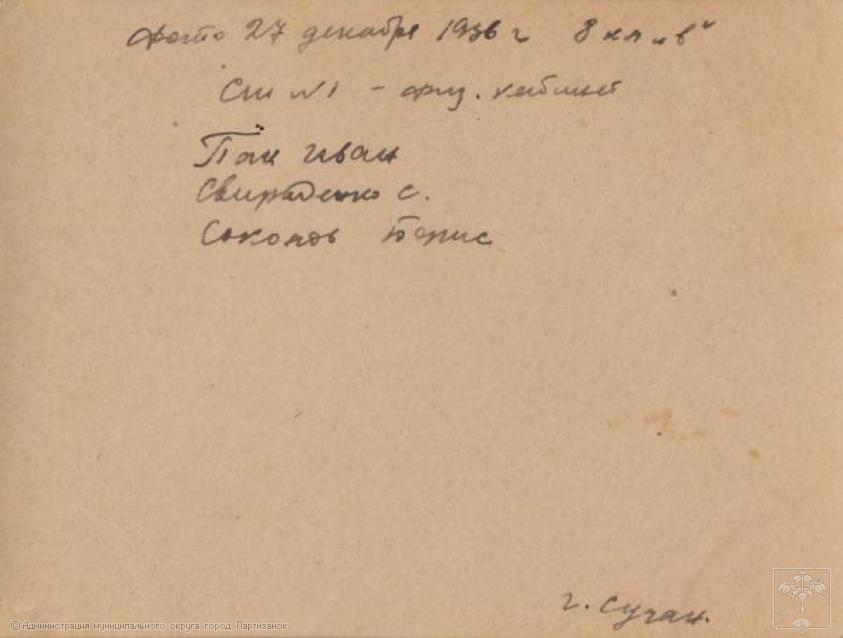 Фото 27 декабря 1936 г 8 кл "в"
Сш №1 - физ. кабинет
Пак Иван
Свириденко С.
Соколов Борис
г. Сучан.
©Администрация муниципального округа город Партизанск